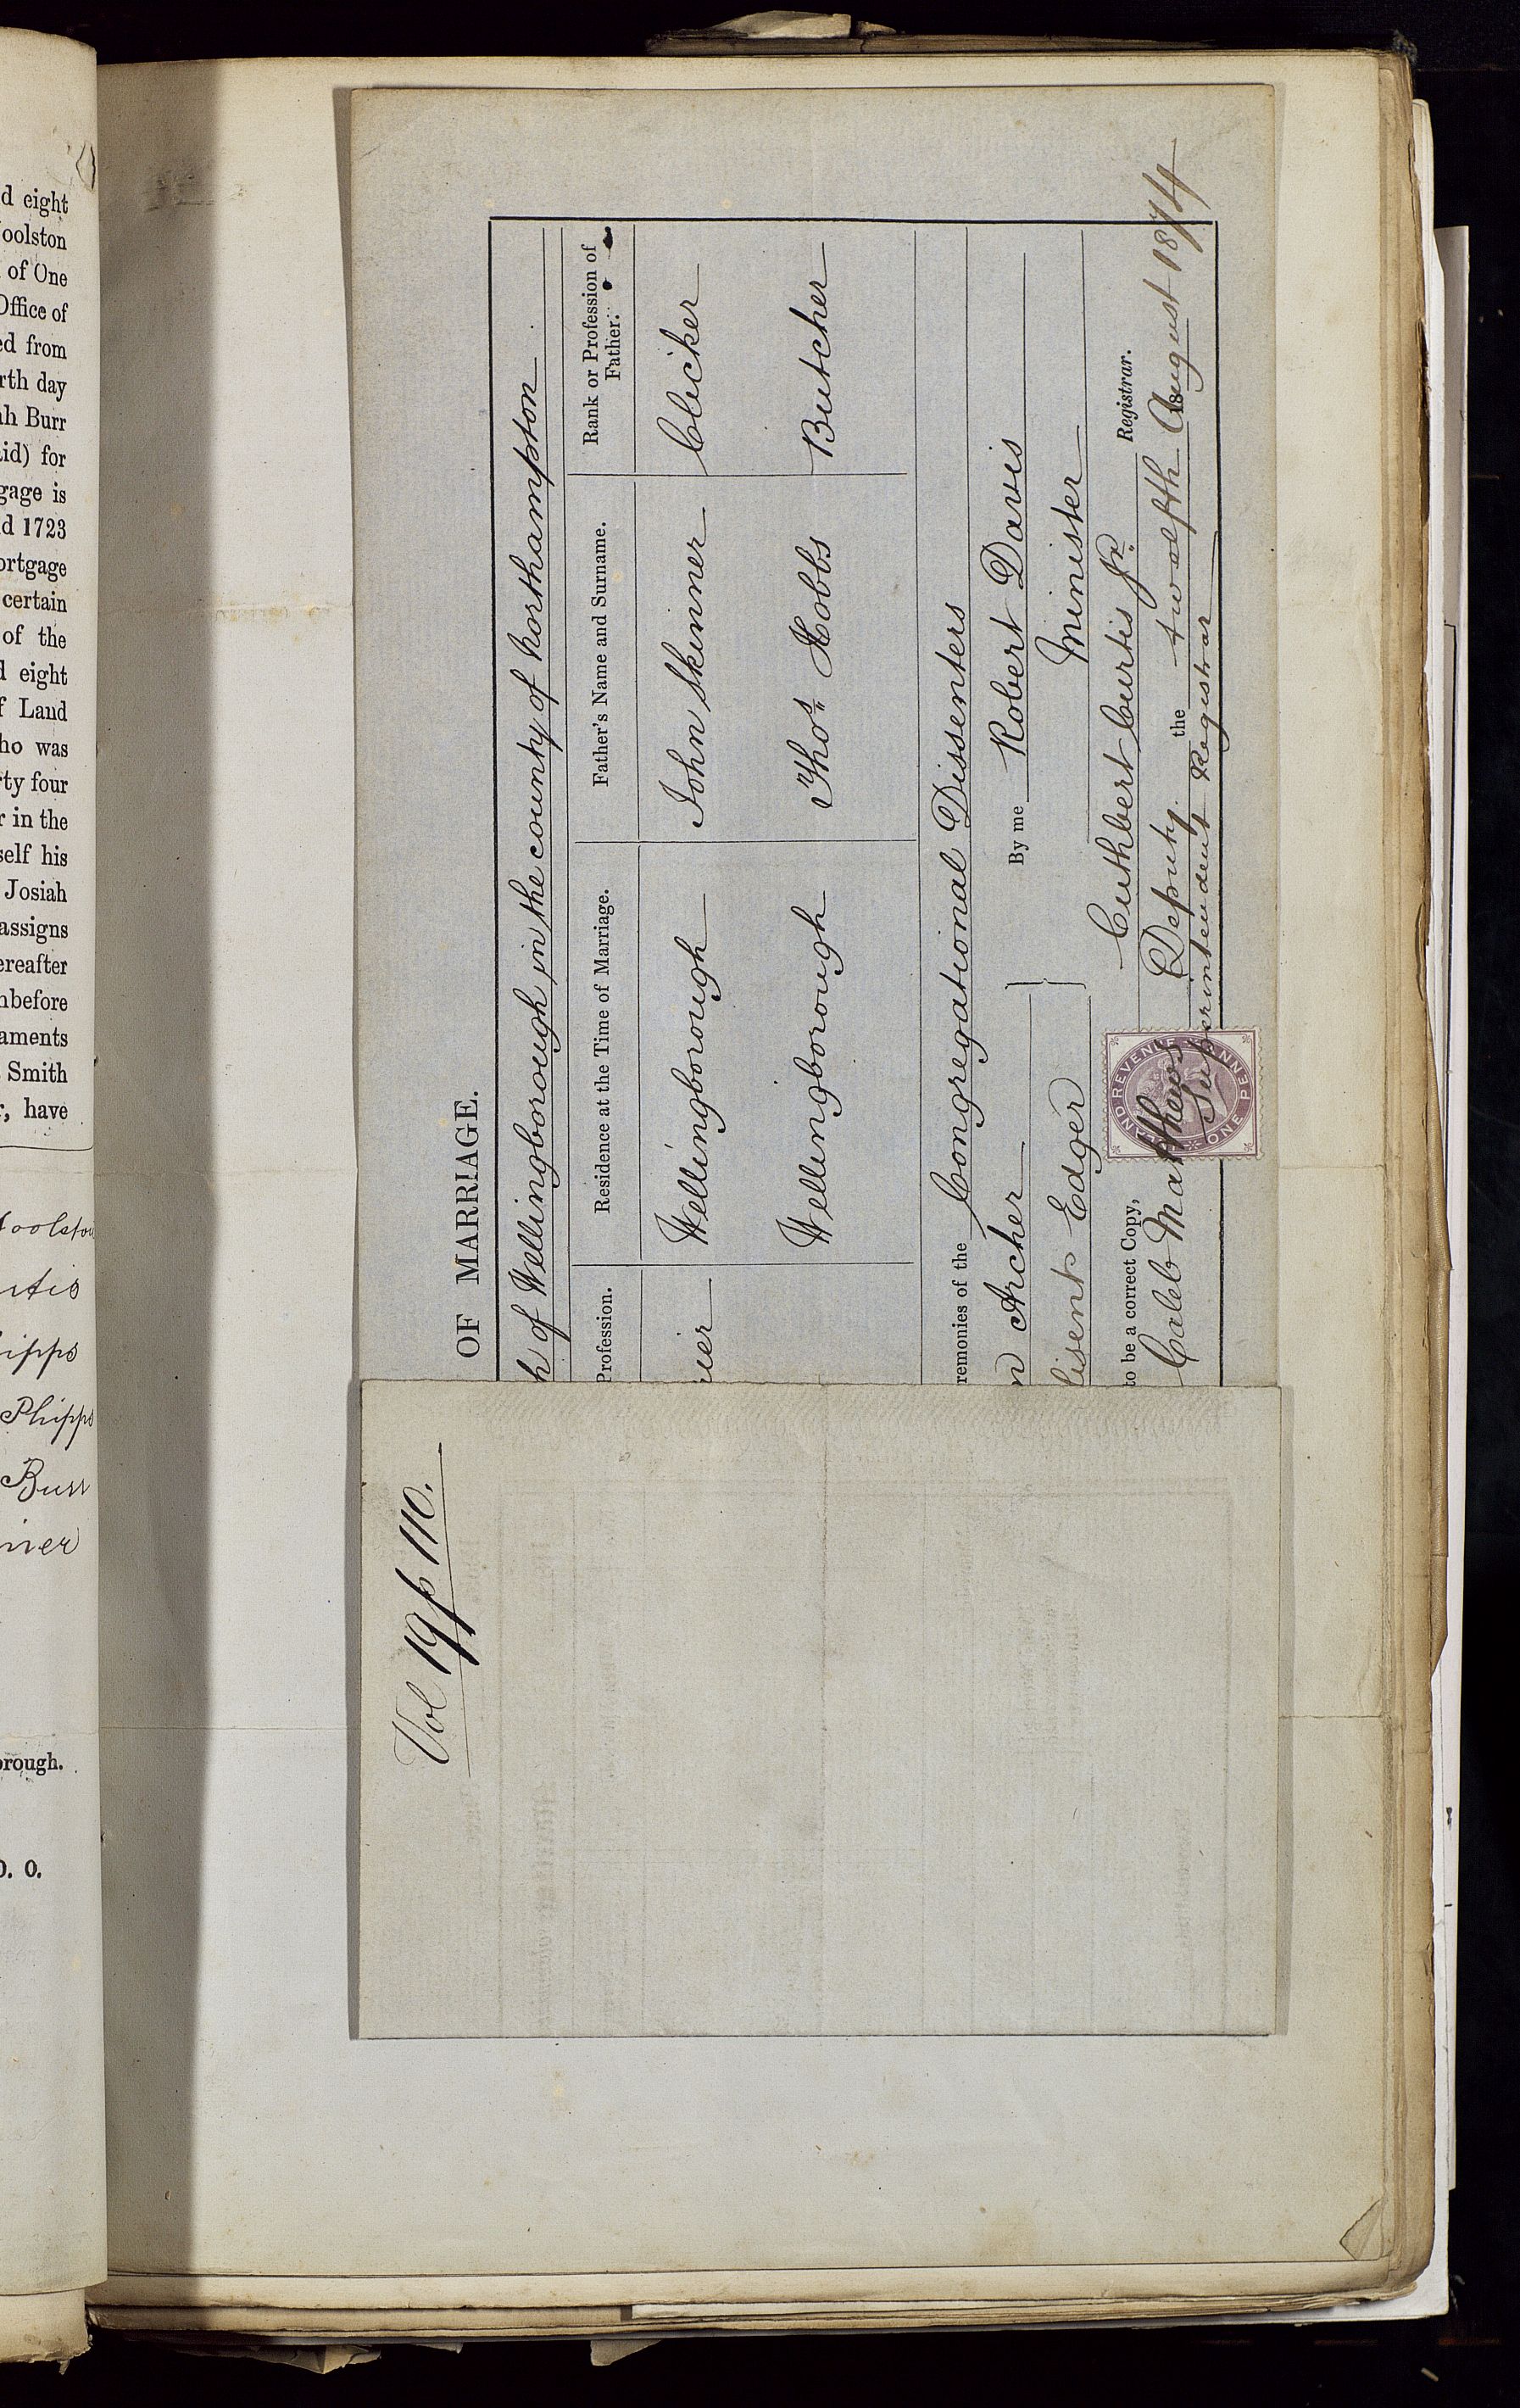 d eight
oolston
of One
Office of
ed from
rth day
ah Burr
aid) for
gage is
d 1723
ortgage
certain
of the
d eight
f Land
ho was
rty four
r in the
self his
Josiah
assigns
ereafter
nbefore
aments
Smith
r, have
oolston
rtis
ipps
Phipps
Burr
orough.
D. O.
OF MARRIAGE.
h of Wellingborough in the county of Northampton
Profession. Residence at the Time of Marriage. Father's Name and Surname. Rank or Profession of
Father.
rier Wellingborough John Skinner Clicker
Wellingborough Thos. Hobbs Butcher
remonies of the Congregational Dissenters
n Archer By me Robert Davis
lisent Edger Minister
Cuthbert Curtis Jr. Registrar.
to be a correct Copy,
Caleb Mathews Deputy the twelfth August 1874
Superintendent Registrar
INLAND REVENUE
ONE PENNY
Vol 19 p 110.